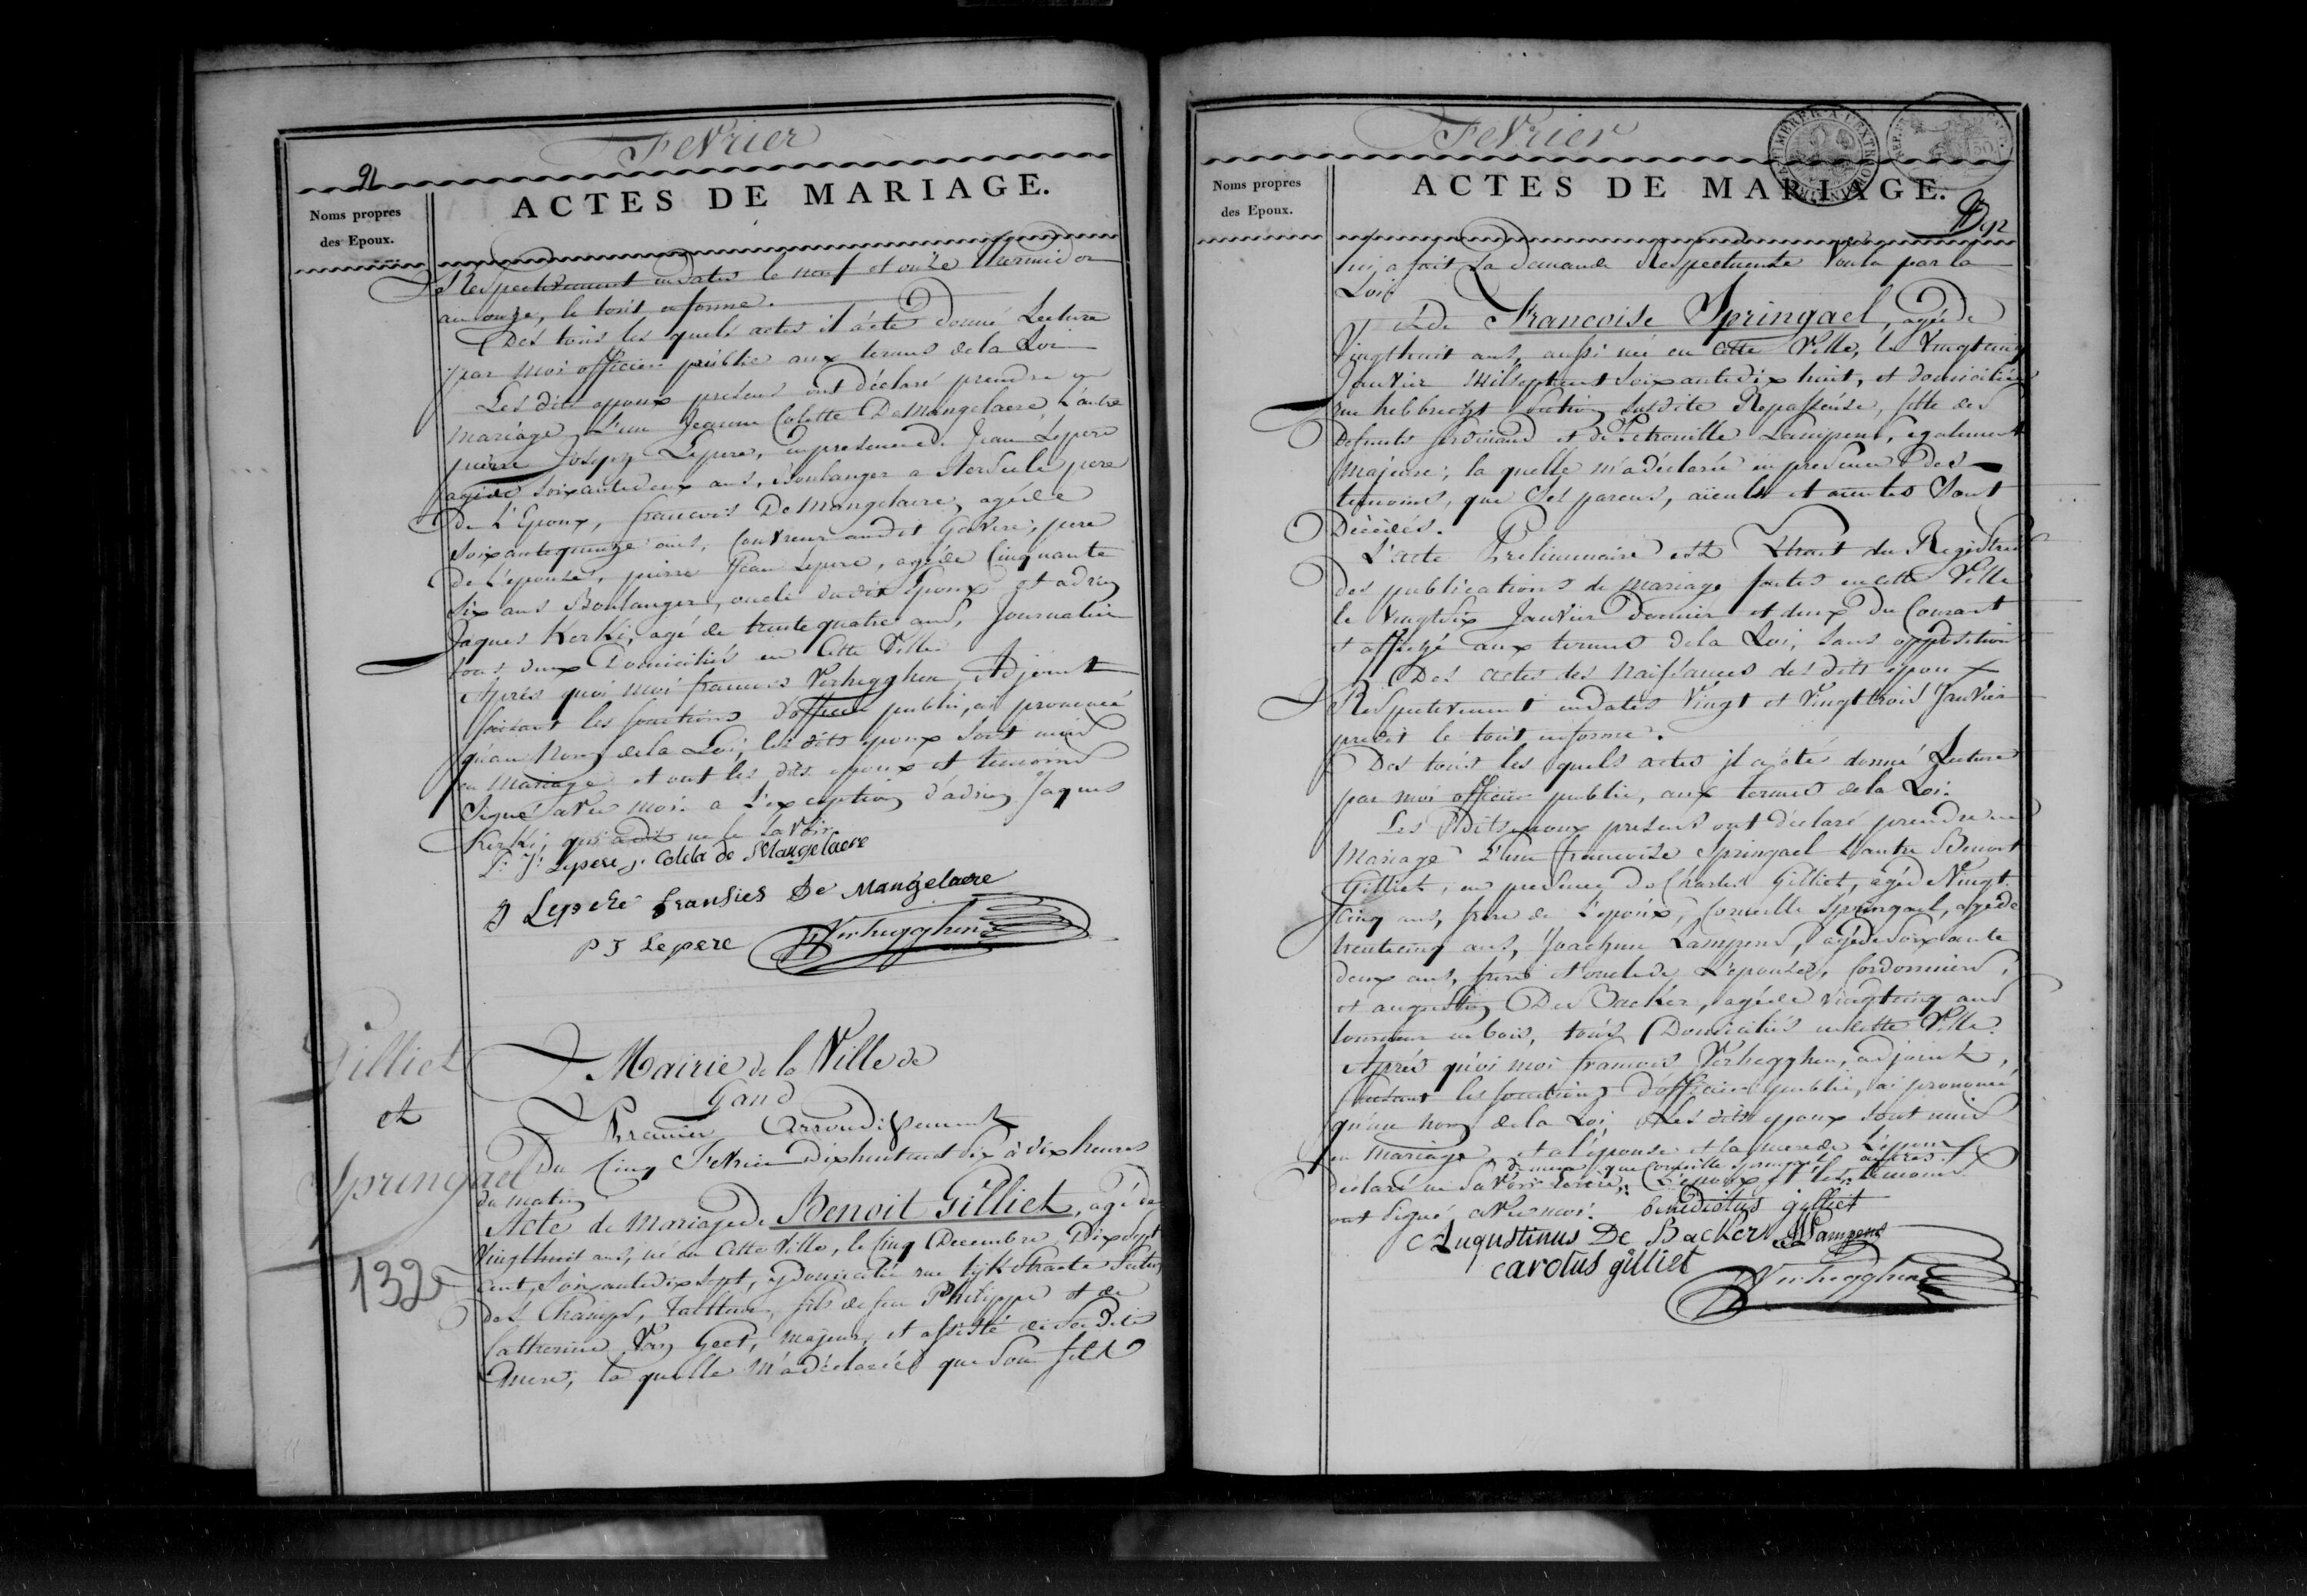 Fevrier
91
ACTES DE MARIAGE.
Noms propres
des Epoux.
Respectivement endates le neuf et onze Thermidor
an onze, le tout enforme.
Dés tous les quels actes il a été donné Lecture
par moi officier public aux termes de la Loi
Les dits epoux présens ont déclaré prendre en
mariage L'un Jeanne Colette De Mangelaere L'autre
pierre Joseph Lepere, en presence de Jean Lepere
agé de soixantedeux ans, Boulanger a père
de L'Epoux, francois De Mangelaere, agé de
soixantequinze ans, Couvreur audit Gavere, pere
de L'epouse, pierre Jean Lepere, agé de Cinquante
six ans Boulanger, oncle dudit Epoux et adrien
Jaques Kerki, agé de trente quatre ans, Journalier
tous deux Domiciliés en Cette Ville
Aprés quoi moi francois Verhegghen, Adjoint
faisant les fonctions d'officier public, ai prononcé
qu'au nom de la Loi, les dits epoux sont unis
en mariage et ont les dits epoux et temoins
Signé avec moi. a L'exception d'adrien Jaques
Kerki, qui a dit ne le savoir
P. J. Lepere J. Coleta de Mangelaere
J Lepere fransies De Mangelaere
P J Lepere Verhegghen
Gilliet
et
Springael
132
Mairie de la Ville de
Gand
Premier Arrondissement
Du Cinq Fevrier Dixhuitcent dix à dix heures
du matin
Acte de Mariage de Benoit Gilliet, agé de
Vingthuit ans, né en Cette Ville, le Cinq Decembre Dixsept
cent, Soixantedixsept, y domicilié rue Section
des Champs, Tailleur, fils de feu Philippe et de
Catherine Van Geet, majeur, et assisté de sa Dite
Mere, la quelle m'a déclarée que son fils
Fevrier
TIMBRER A L'EXTRAORDINAIRE
50
ACTES DE MARIAGE.
Noms propres
des Epoux.
92
lui a fait La demande Respectueuse Voulu par la
Loi.
et de Francoise Springael, agée de
Vingthuit ans, aussi née en cette Ville, le Vingtcinq
Janvier Milseptcent soixantedix huit, et domiciliée
rue Section Susdite Repasseuse, fille des
Defunts ferdinand et de Petronille Lampens, egalement
Majeure; la quelle m'a déclarée en presence des
temoins, que Ses parens, aïeuls et aieules sont
Décédés.
L'acte Preliminaire est Extrait du Registre
Des publications de mariage faites en cette Ville
le Vingtsix Janvier Dernier et deux Du Courant
et affigé aux termes de la Loi, sans opposition
Des actes des naissances des dits epoux
Respectivement endates Vingt et Vingttrois Janvier
le tout enforme.
Des tous les quels actes il a été donné Lecture
par moi officier public, aux termes de la Loi.
Les Dits epoux presens ont déclaré prendre en
Mariage L'un francoise Springael L'autre Benoit
Gilliet, en presence de Charles Gilliet, agé de Vingt
Cinq ans, frere de L'epoux, Corneille Springael, agé de
trentecinq ans, Joachim Lampens, agé de soixante
deux ans, frere et oncle de L'epouse, Cordonniers,
et augustin De Backer, agé de vingtcinq ans
tourneur en bois, tous Domiciliés en cette Ville.
Aprés quoi moi francois Verhegghen, adjoint,
faisant les fonctions d'officier public, ai prononcé
qu'au nom de la Loi, Les dits epoux sont unis
en Mariage, et a L'epouse et la mere de L'epoux
de meme que Corneille Springael autres
declaré ne savoir ecrire, L'epoux et les temoins
ont Signé avec moi. benedictus gilliet
Augustinus De Backer J Lampens
carolus gilliet
Verhegghen